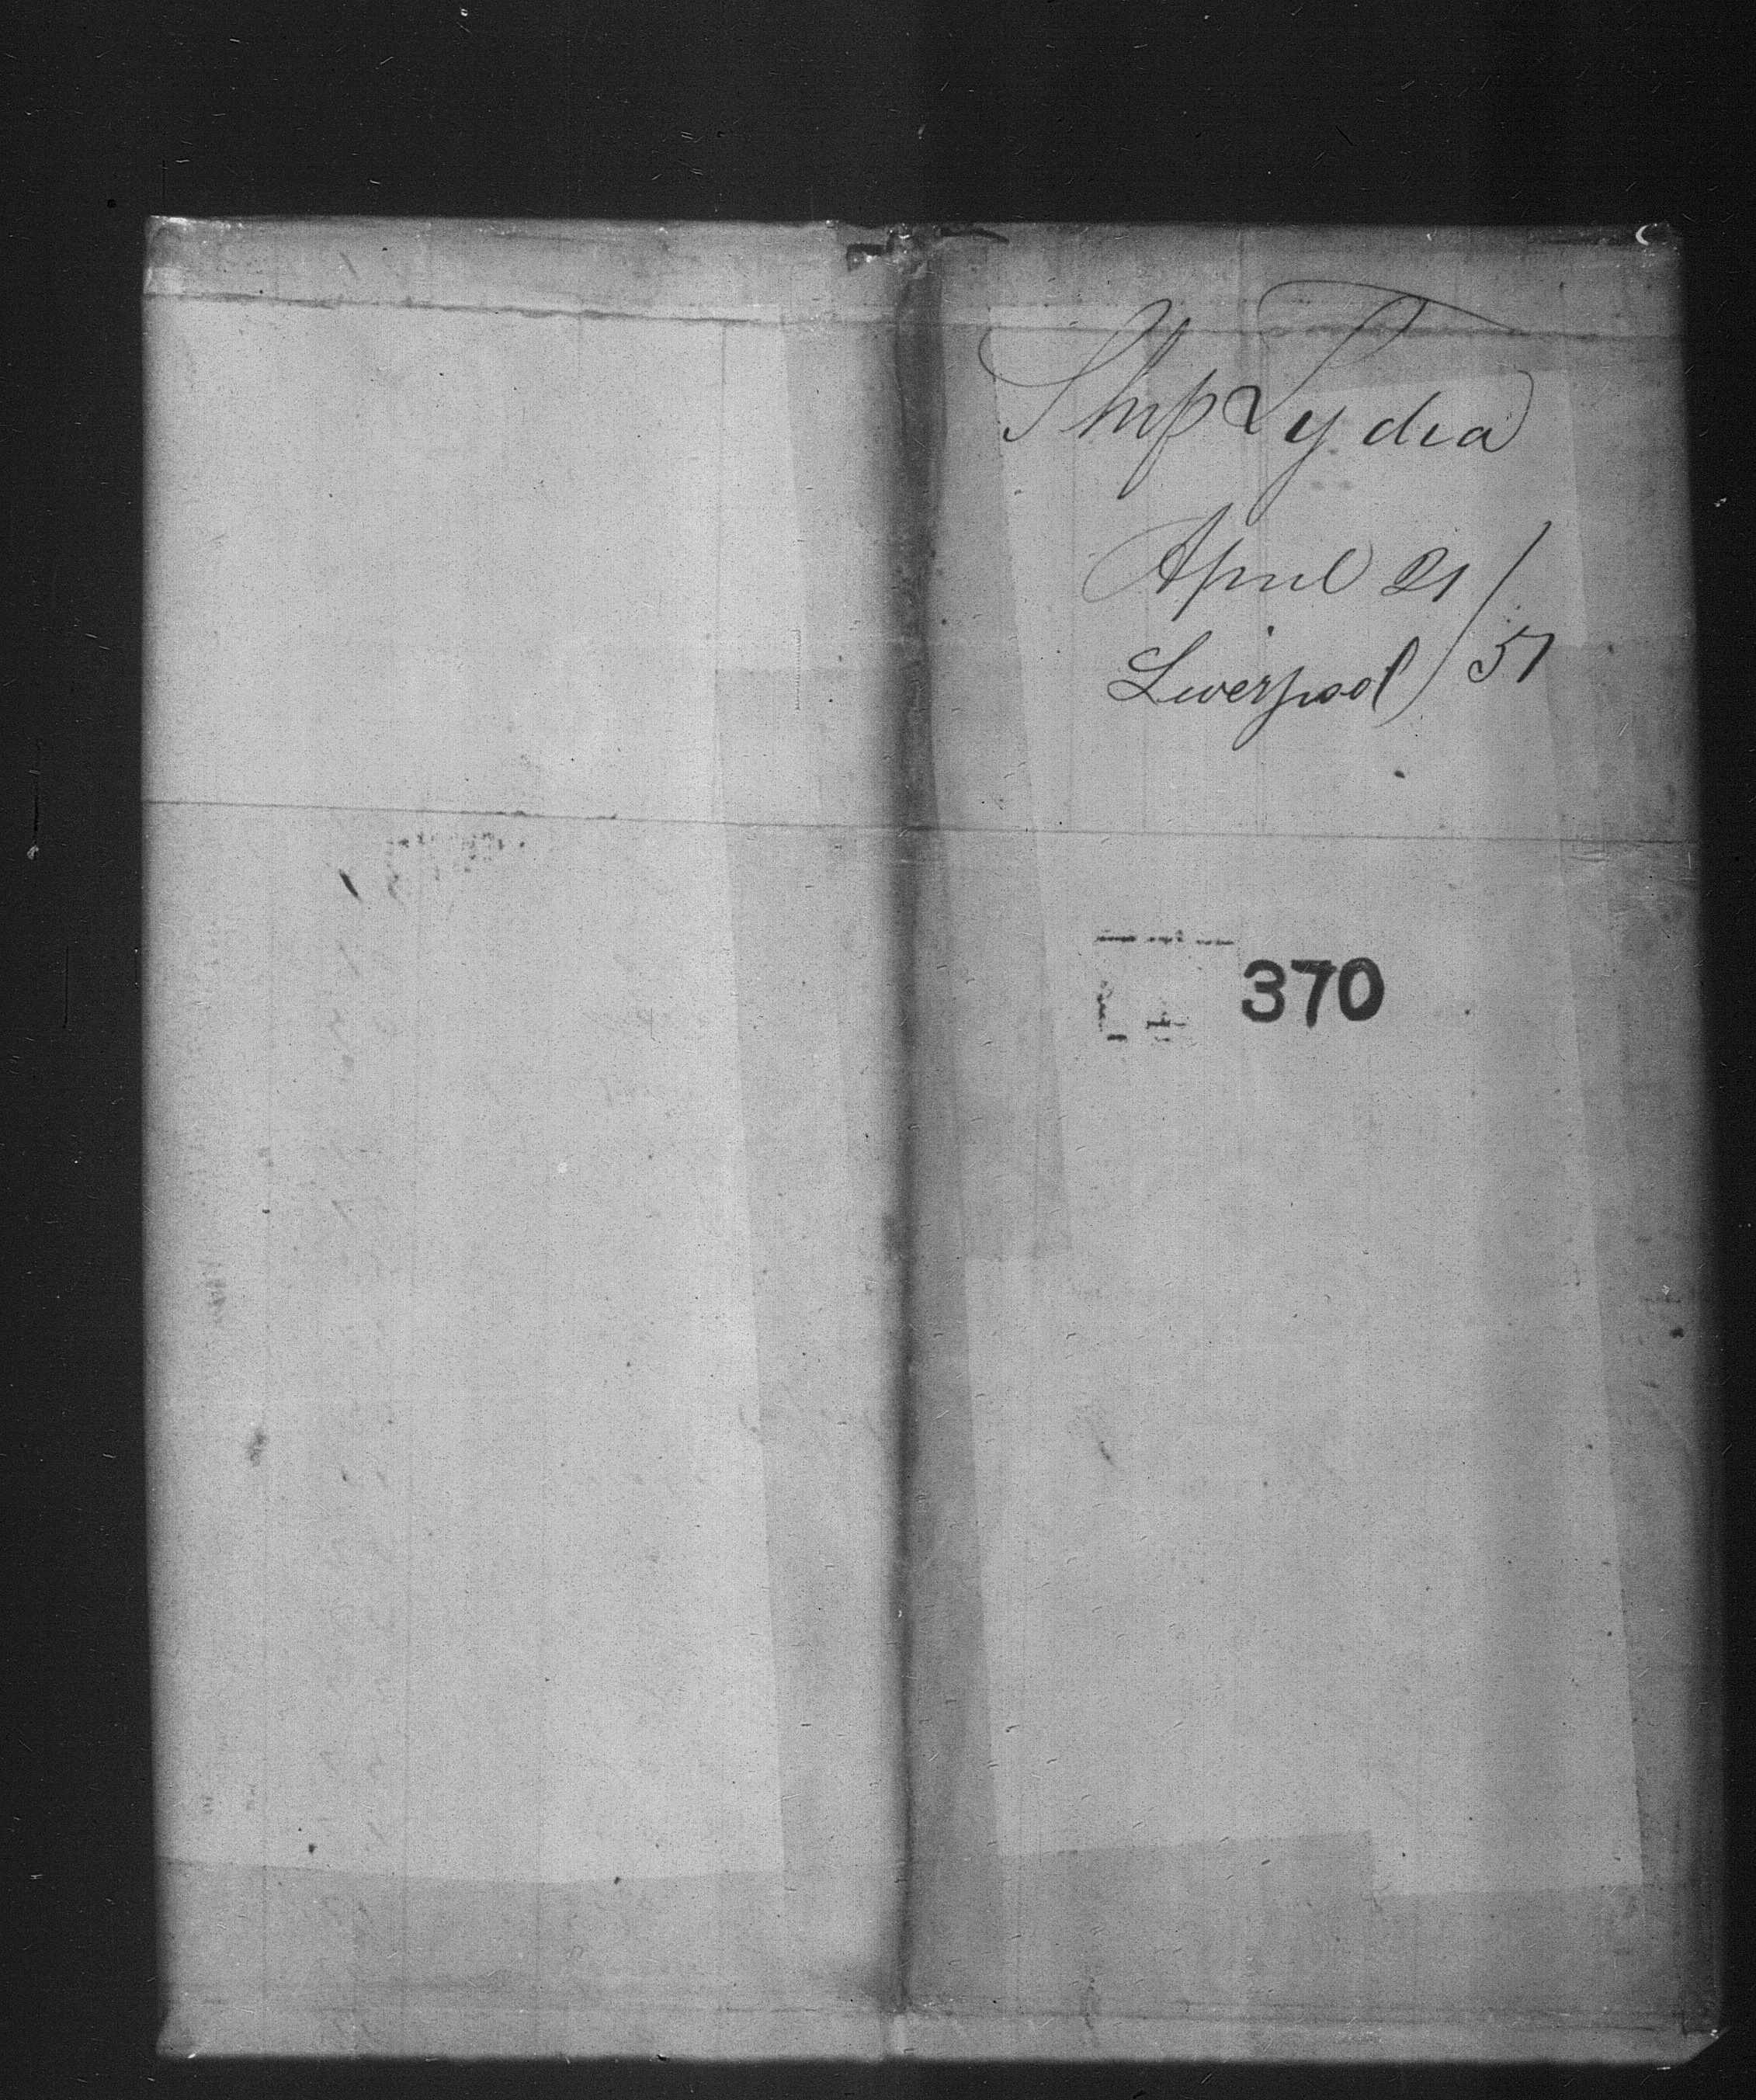 Ship Lydia
April 21/
Liverpool/51
370